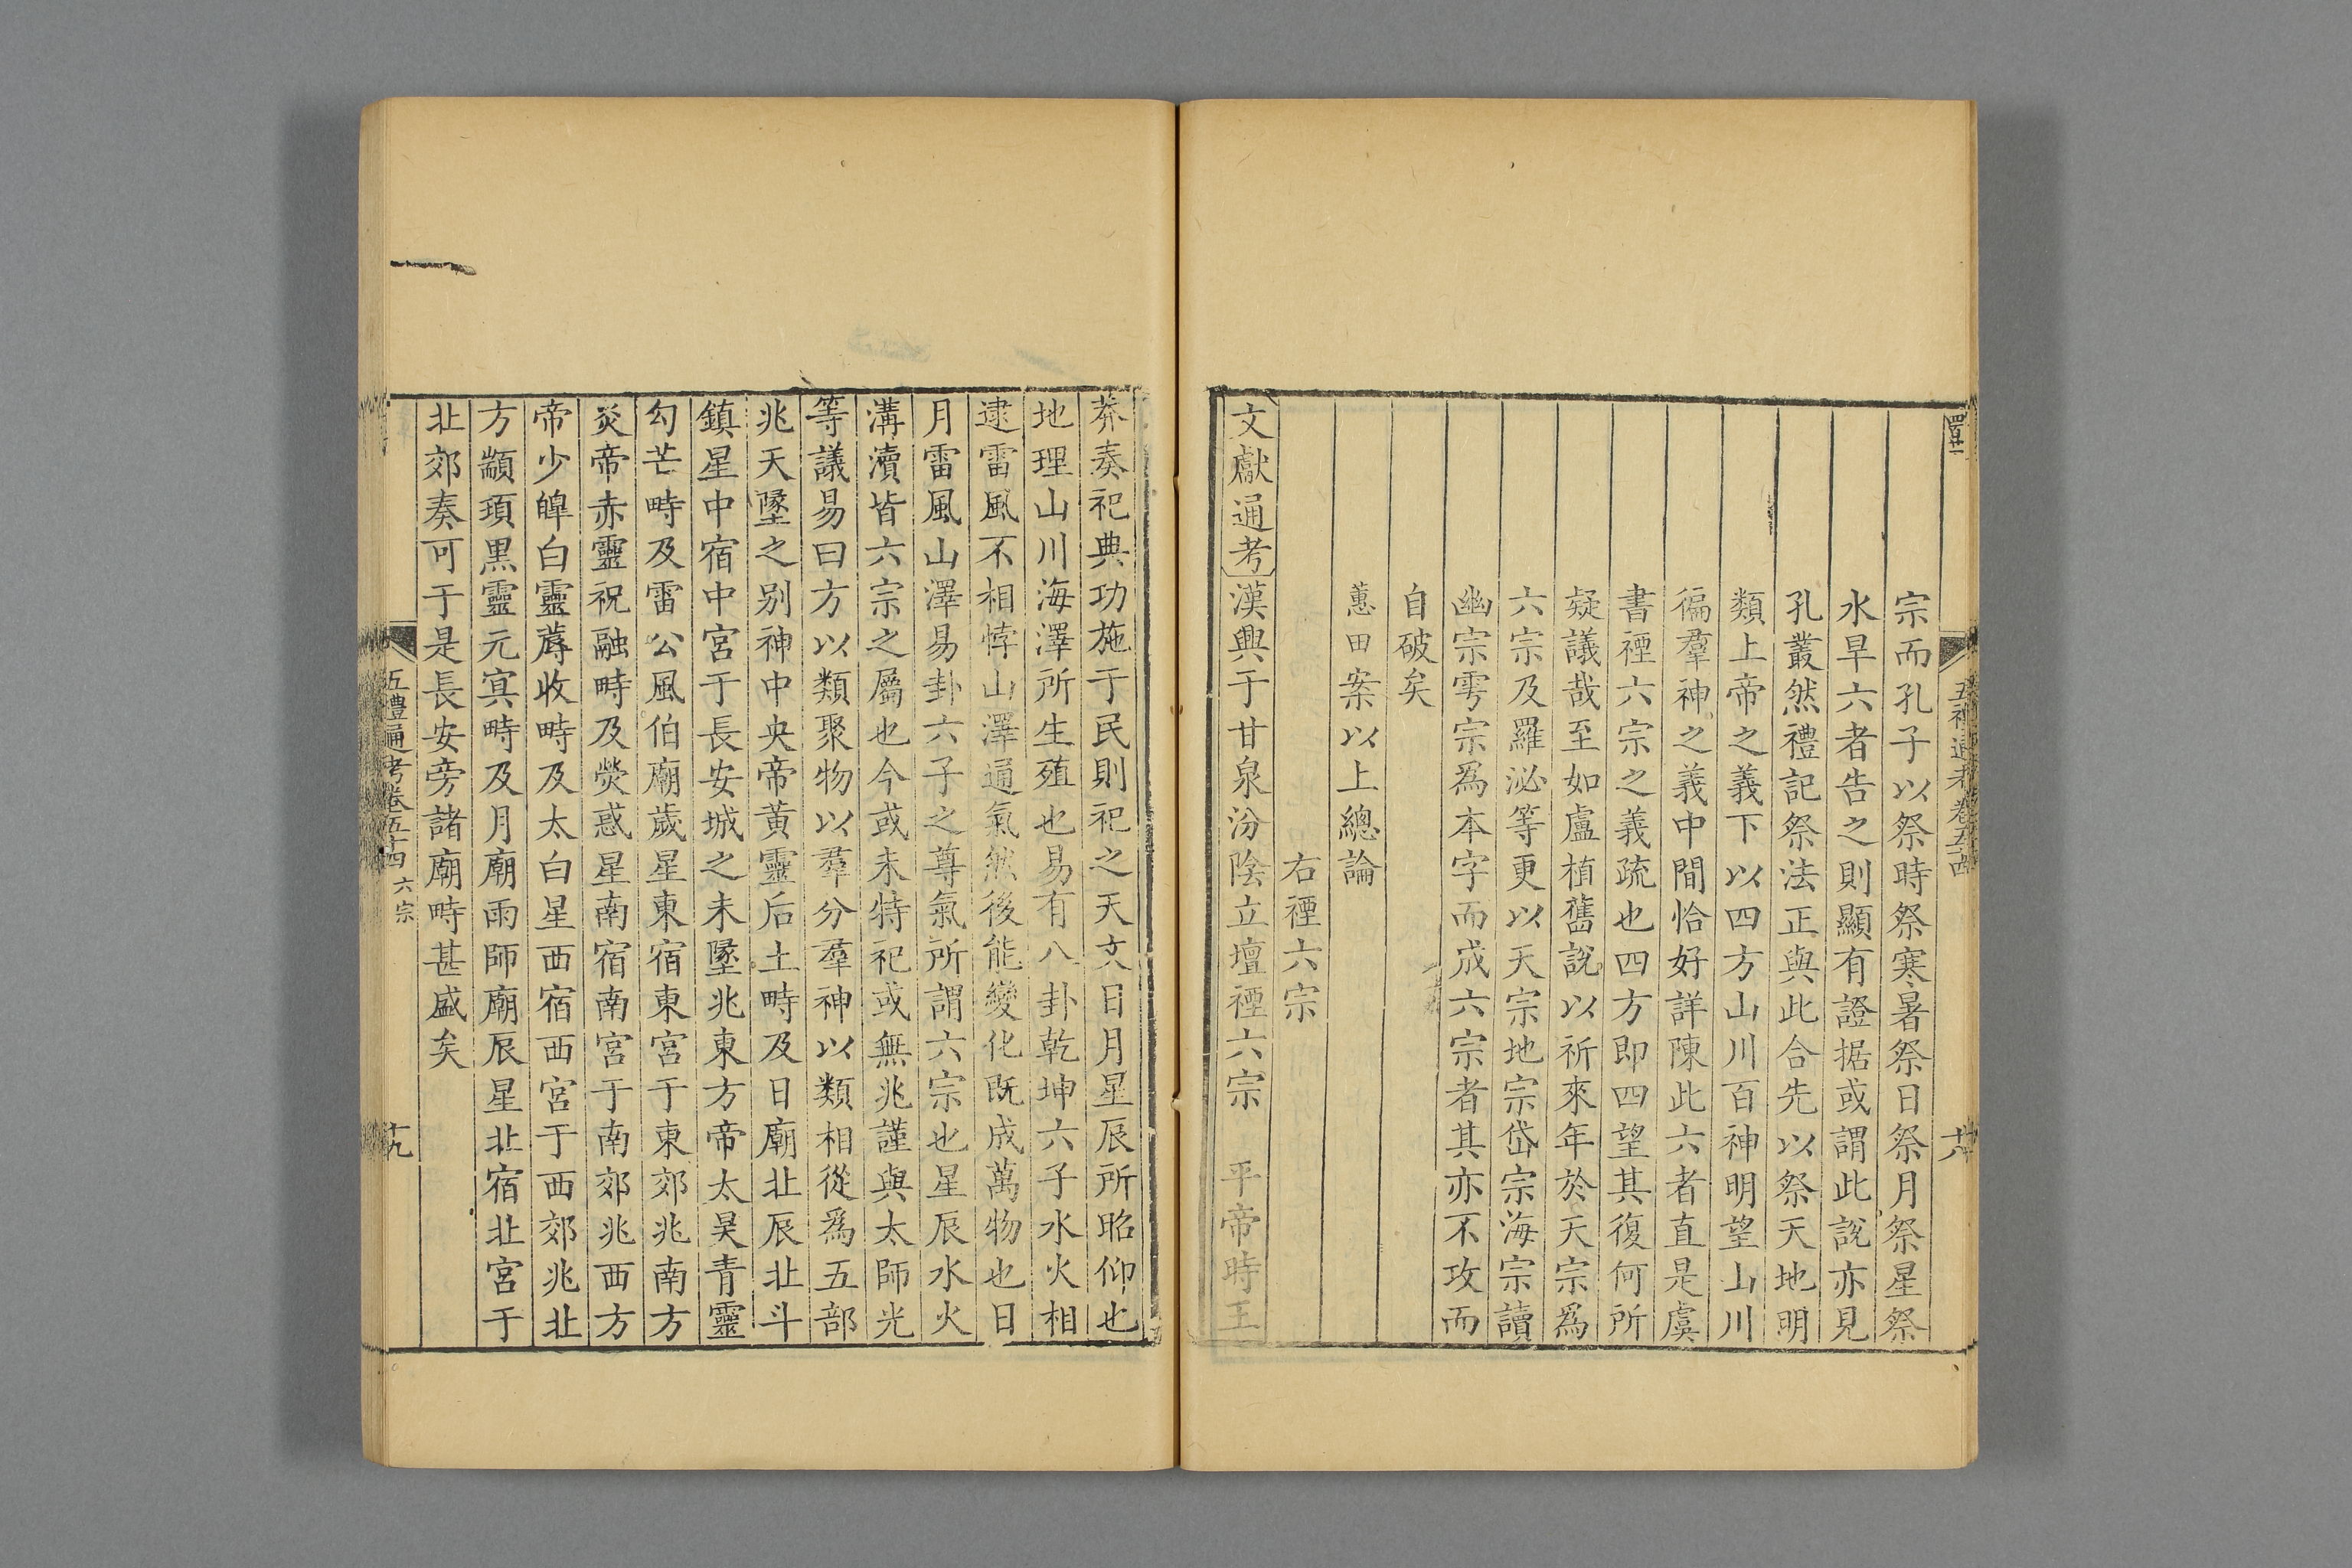 五禮通考卷五十四
十八
宗而孔子以祭時祭寒暑祭日祭月祭星祭
水旱六者告之則顯有證据或謂此說亦見
孔叢然禮記祭法正與此合先以祭天地明
類上帝之義下以四方山川百神明望山川
徧羣神之義中間恰好詳陳此六者直是虞
書禋六宗之義疏也四方即四望其復何所
疑議哉至如盧植舊說以祈來年於天宗爲
六宗及羅泌等更以天宗地宗岱宗海宗讀
幽宗雩宗爲本字而成六宗者其亦不攻而
自破矣
蕙田案以上總論
右禋六宗
文獻通考漢興于甘泉汾陰立壇禋六宗 平帝時王
莽奏祀典功施于民則祀之天文日月星辰所昭仰也
地理山川海澤所生殖也易有八卦乾坤六子水火相
逮雷風不相悖山澤通氣然後能變化既成萬物也日
月雷風山澤易卦六子之尊氣所謂六宗也星辰水火
溝瀆皆六宗之屬也今或未特祀或無兆謹與太師光
等議易曰方以類聚物以羣分羣神以類相從爲五部
兆天墬之别神中央帝黃靈后土畤及日廟北辰北斗
鎮星中宿中宮于長安城之未墬兆東方帝太昊青靈
勾芒畤及雷公風伯廟歲星東宿東宮于東郊兆南方
炎帝赤靈祝融畤及熒惑星南宿南宮于南郊兆西方
帝少皡白靈蓐收畤及太白星西宿西宮于西郊兆北
方顓頊黑靈元冥畤及月廟雨師廟辰星北宿北宮于
北郊奏可于是長安旁諸廟畤甚盛矣
五禮通考卷五十四 六宗
十九